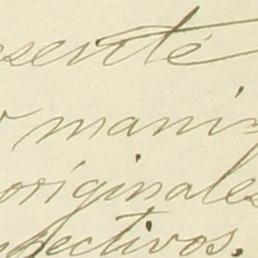 esenté
mani
originales
pectivos.